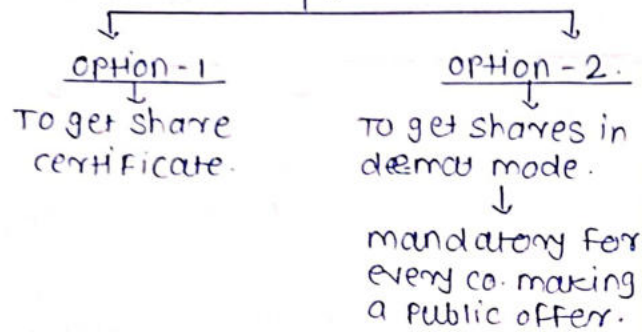 OPTION-1
To get share
certificate.
OPTION-2.
To get shares in
deemat mode.
mandatory for
every co. making
a public offer.